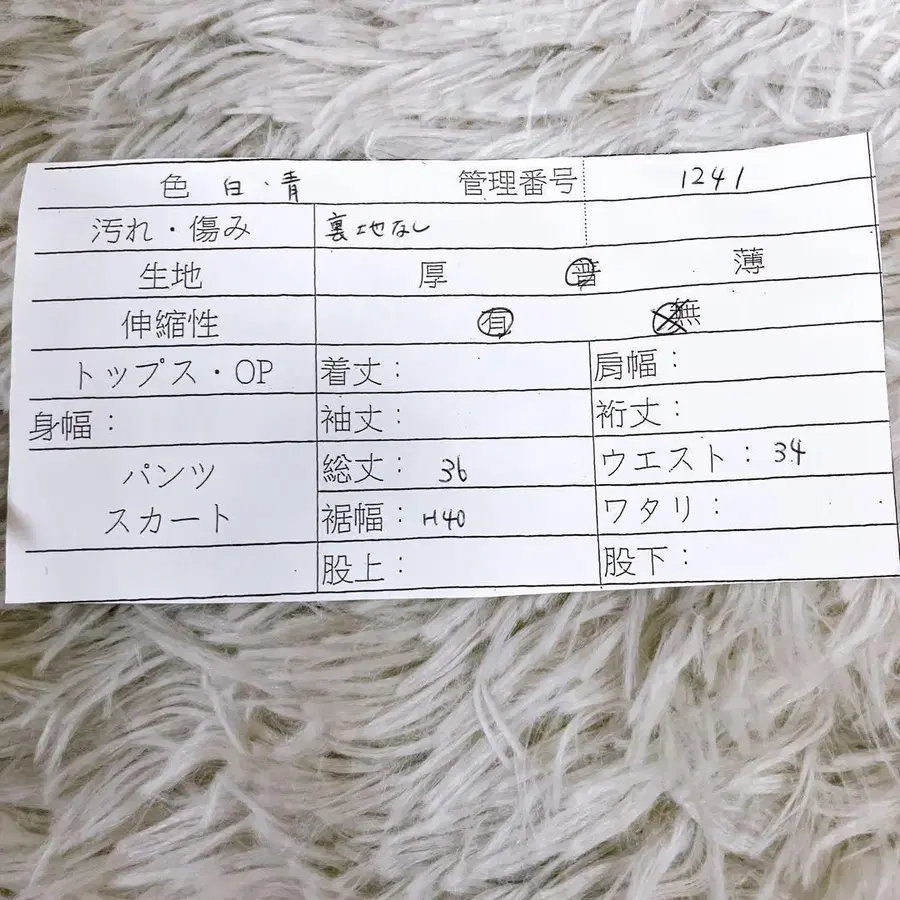 色 白・青 管理番号 1241
汚れ・傷み 裏地なし
生地 厚 普 薄
伸縮性 有 無
トップス・OP 着丈： 肩幅：
身幅： 袖丈： 裄丈：
パンツ 総丈： 36 ウエスト： 34
スカート 裾幅： H40 ワタリ：
股上： 股下：